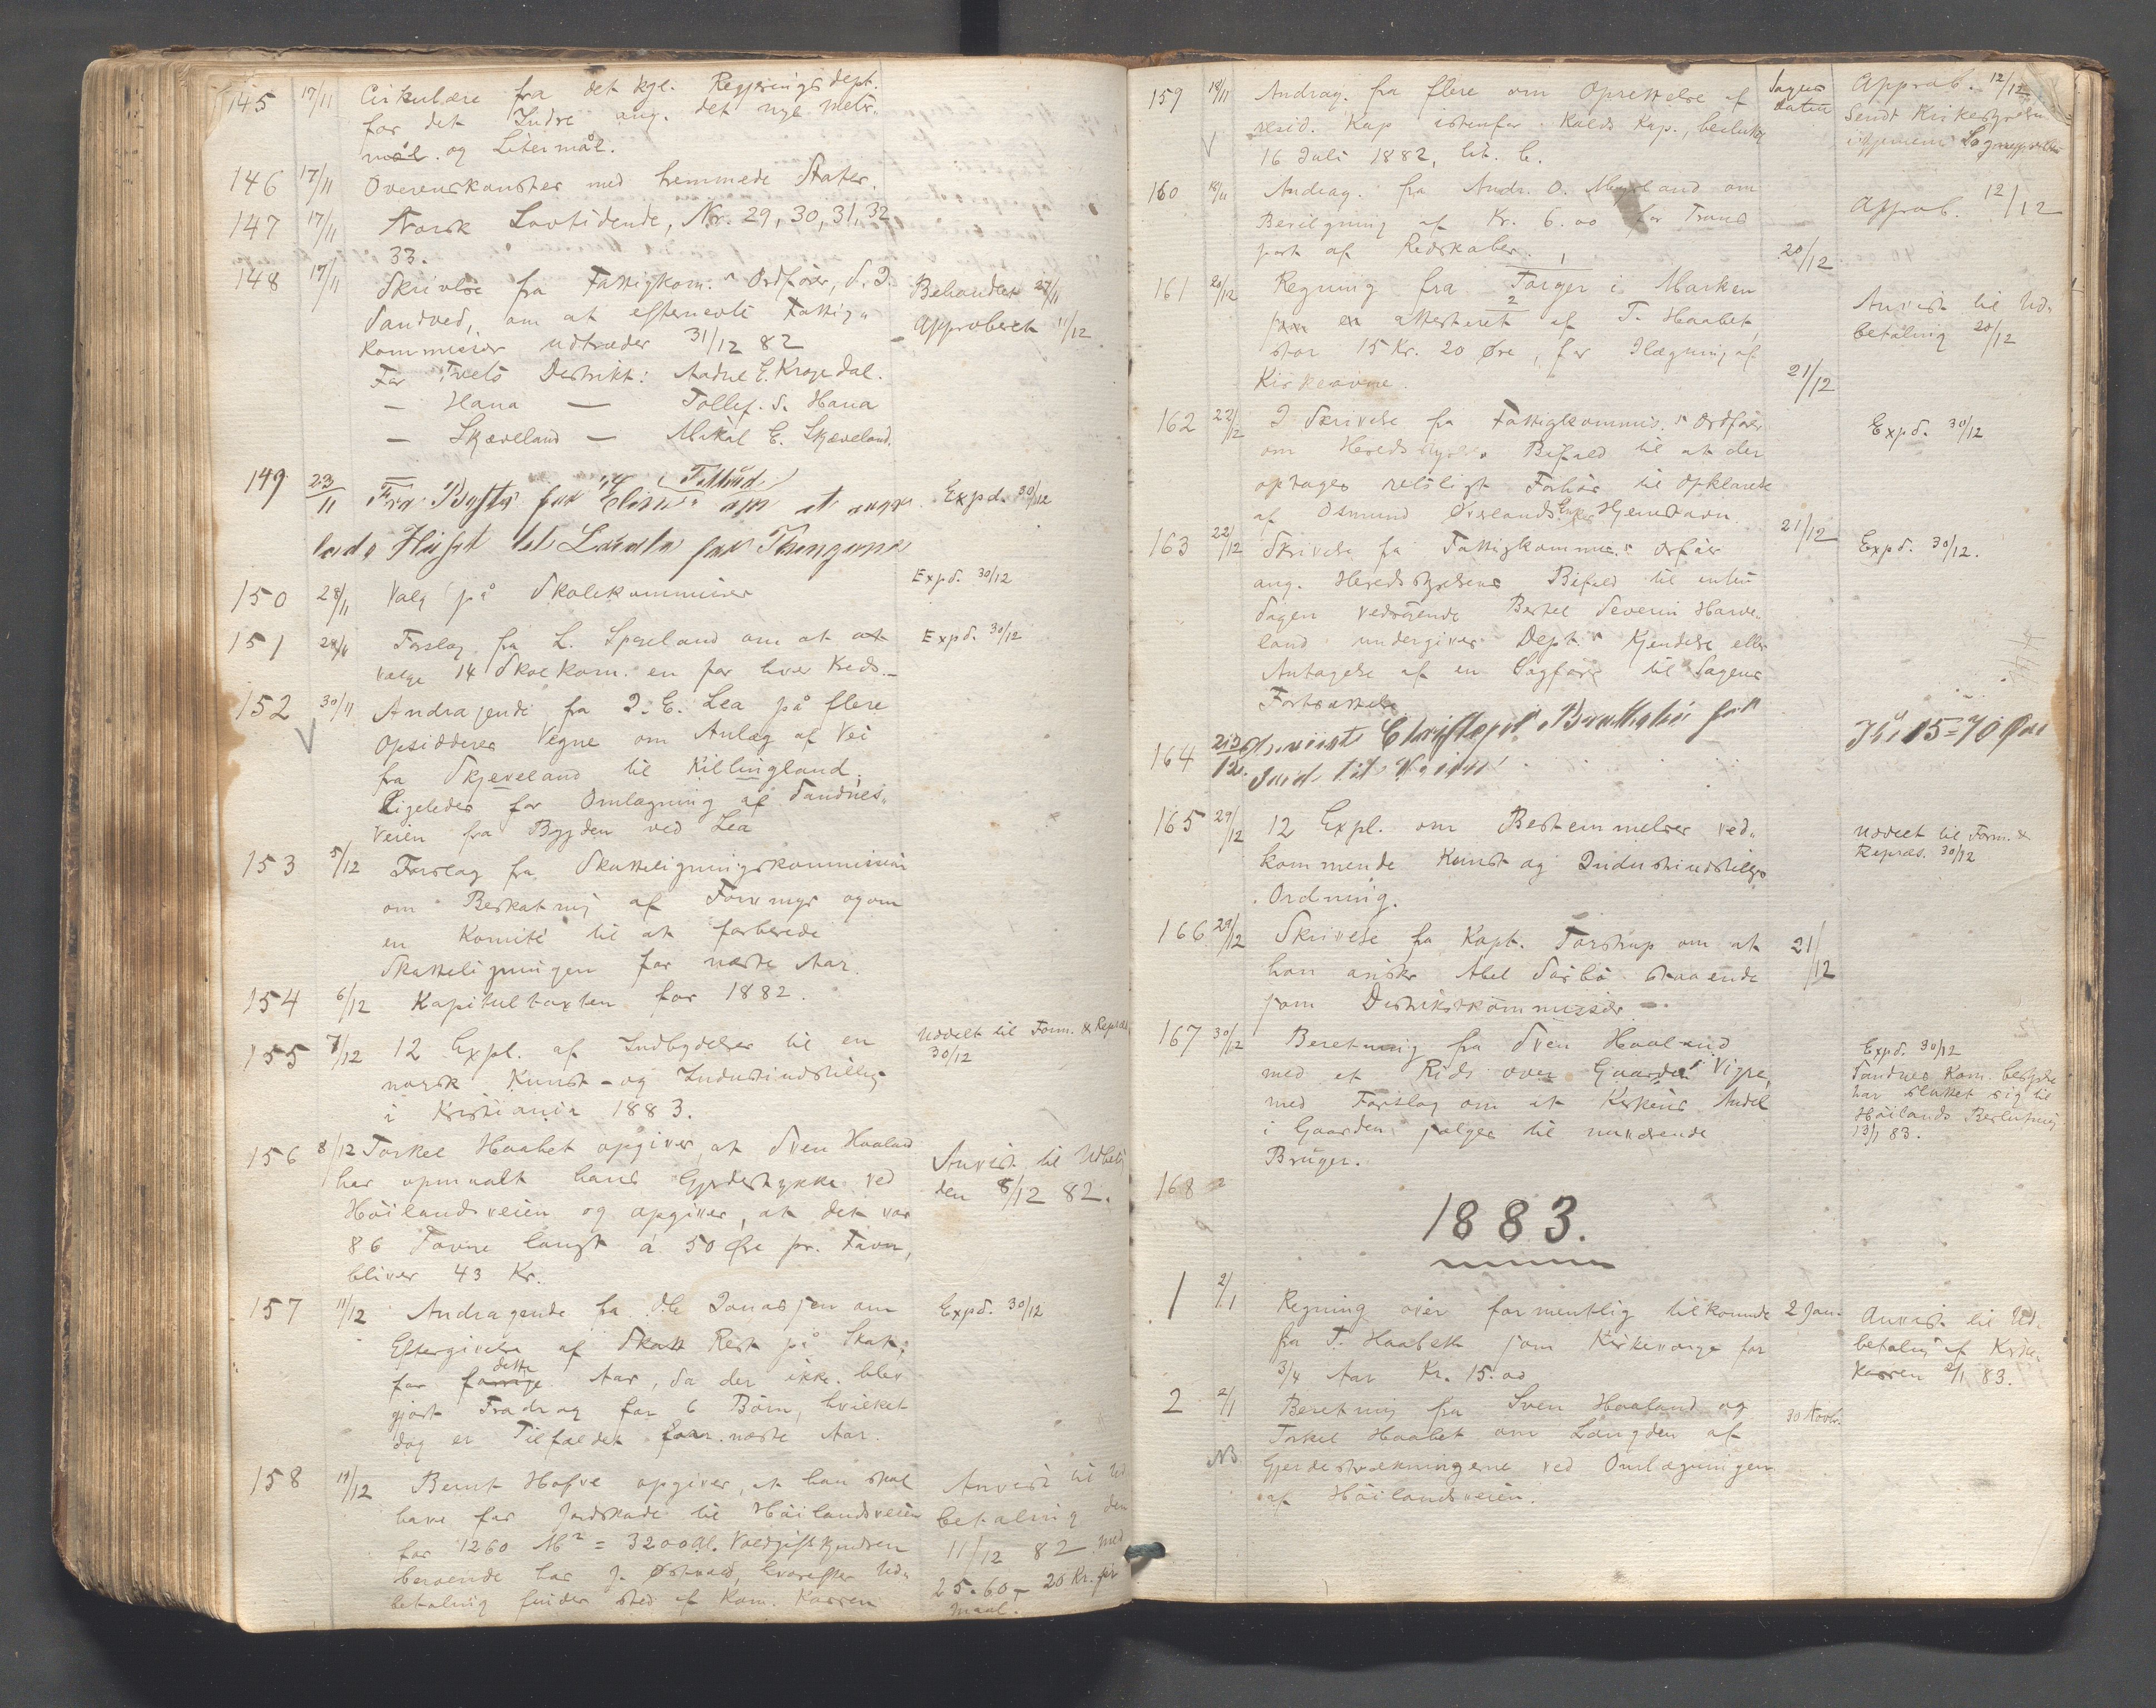 145 17/11 Cirkulære fra det kgl. Regjerings dept.
for det Indre ang. det nye Metr.
mål. og Litermål.
146 17/11 Overenskomster med fremmede Stater.
147 17/11 Norsk Lovtidende, Nr. 29, 30, 31, 32
33.
148 17/11 Skrivelse fra Fattigkom.s Ordfører, S. I. Behandlet 27/11
Sandved, om at efternevte Fattig- Approberet 11/12
kommissær udtræder 31/12 82
For Tvets Destrikt: Aadne E. Krogedal.
— Hana — Tollef. S. Hana
— Skjæveland — Mikal E. Skjæveland.
149 23/11 Fra om at Expd. 30/12
lade til Lokale for
150 28/11 Valg på Skolekommissær Expd. 30/12
151 28/11 Forslag fra L. Speeland om at at Expd. 30/12
vælge 14 Skolkom. en for hver Kreds.
152 30/11 Andragende fra I. E. Lea på flere
Opsidderes Vegne om Anlæg af Vei
fra Skjeveland til Killingland,
Ligeledes for Omlægning af Sandnes-
veien fra Bygden ved Lea
153 5/12 Forslag fra Skatteligningskommissionen
om Beskatning af ogom
en Komité til at forberede
Skatteligningen for næste Aar.
154 6/12 Kapitultaxten for 1882.
155 7/12 12 Expl. af Indbydelser til en Uddelt til Form. & Repræs.
norsk Kunst- og Industriudstilling 30/12
i Kristiania 1883.
156 8/12 Torkel Haabet opgiver, at Sven Haaland Anvist til Udbet.
har opmaalt hans Gjerdestykke ved den 8/12 82.
Høilandsveien og opgiver, at det var
86 Favne langt á 50 Øre pr. Favn,
bliver 43 Kr.
157 11/12 Andragende fra Jonassen om Expd. 30/12
Eftergivelse af Skatt Rest på Skat,
for forrige dette Aar, da der ikke blev
gjort Fradrag for 6 Børn, hvilket
dog er Tilfældet for næste Aar.
158 11/12 Bernt Hofve opgiver, at han skal Anvist til Ud
have for Jordskade til Høilandsveien betaling den
for 1260 M² = 3200 Al. 11/12 82 med
beroende hos J. Østraad, hvorefter Ud- 25.60 – 20 Kr. pr
betaling finder sted af Kom. Kassen Maal.
159 18/11 Andrag. fra flere om Oprettelse af Sagens Approb. 12/12
resid. Kap istenfor Kalds Kap., beslutt. datum Sendt Kirkestyrelsen
16 Juli 1882, lit. C.
160 18/11 Andrag. fra Andr. O. om Approb. 12/12
Bevilgning af Kr. 6.00 for Trans
port af Redskaber. 20/12
161 20/12 Regning fra Torger i Marken Anvist til Ud-
som er attesteret af T. Haabet, betaling 20/12
stor 15 Kr. 20 Øre, for Ilægning af
Kirkeovne. 21/12
162 22/12 I Skrivelse fra Fattigkommis.s Ordfører Expd. 30/12
om Heredsstyrels. Bifald til at der
optages retsligt Forhør til Opklarelse
af Osmund Øverlands Enkes Hjemstavn.
163 22/12 Skrivelse fra Fattigkommis.s Orfører 21/12 Expd. 30/12.
ang. Heredsstyrelsens Bifald til enten
Sagen vedrørende Bertel Severin Harve-
land undergives Dept.s Kjendelse eller
Antagelse af en Sagfører til Sagens
Fortsættelse
164 23/12 Kr. 15=70 Øre
Jord til Veien
165 29/12 12 Expl. om Bestemmelser ved- Uddelt til Form. &
kommende Kunst og Industriudstillgs Repræs. 30/12
Ordning.
166 29/12 Skrivelse fra Kapt. Torstrup om at 21/12
han ønsker Abel Sørbø staaende
som Destriktkommissær.
167 30/12 Beretning fra Sven Haaland Expd. 30/12
med et Rids over Gaarden Vigre, Sandnes Kom. bestyrelse
med Forslag om at Kirkens Andel har sluttet sig til
i Gaarden sælges til nuværende Høilands Beslutning
Bruger. 13/1 83.
168
1883.
1 2/1 Regning over formentlig tilkommende 2 Jan. Anvist til Ud-
fra T. Haabeth som Kirkeværge for betaling af Kirke-
3/4 Aar Kr. 15.00 kassen 2/1 83.
2 2/1 Beretning fra Sven Haaland og 30 Novbr.
Torkel Haabet om Længden af
NB. Gjerdestrækningerne ved Omlægningen
af Høilandsveien.